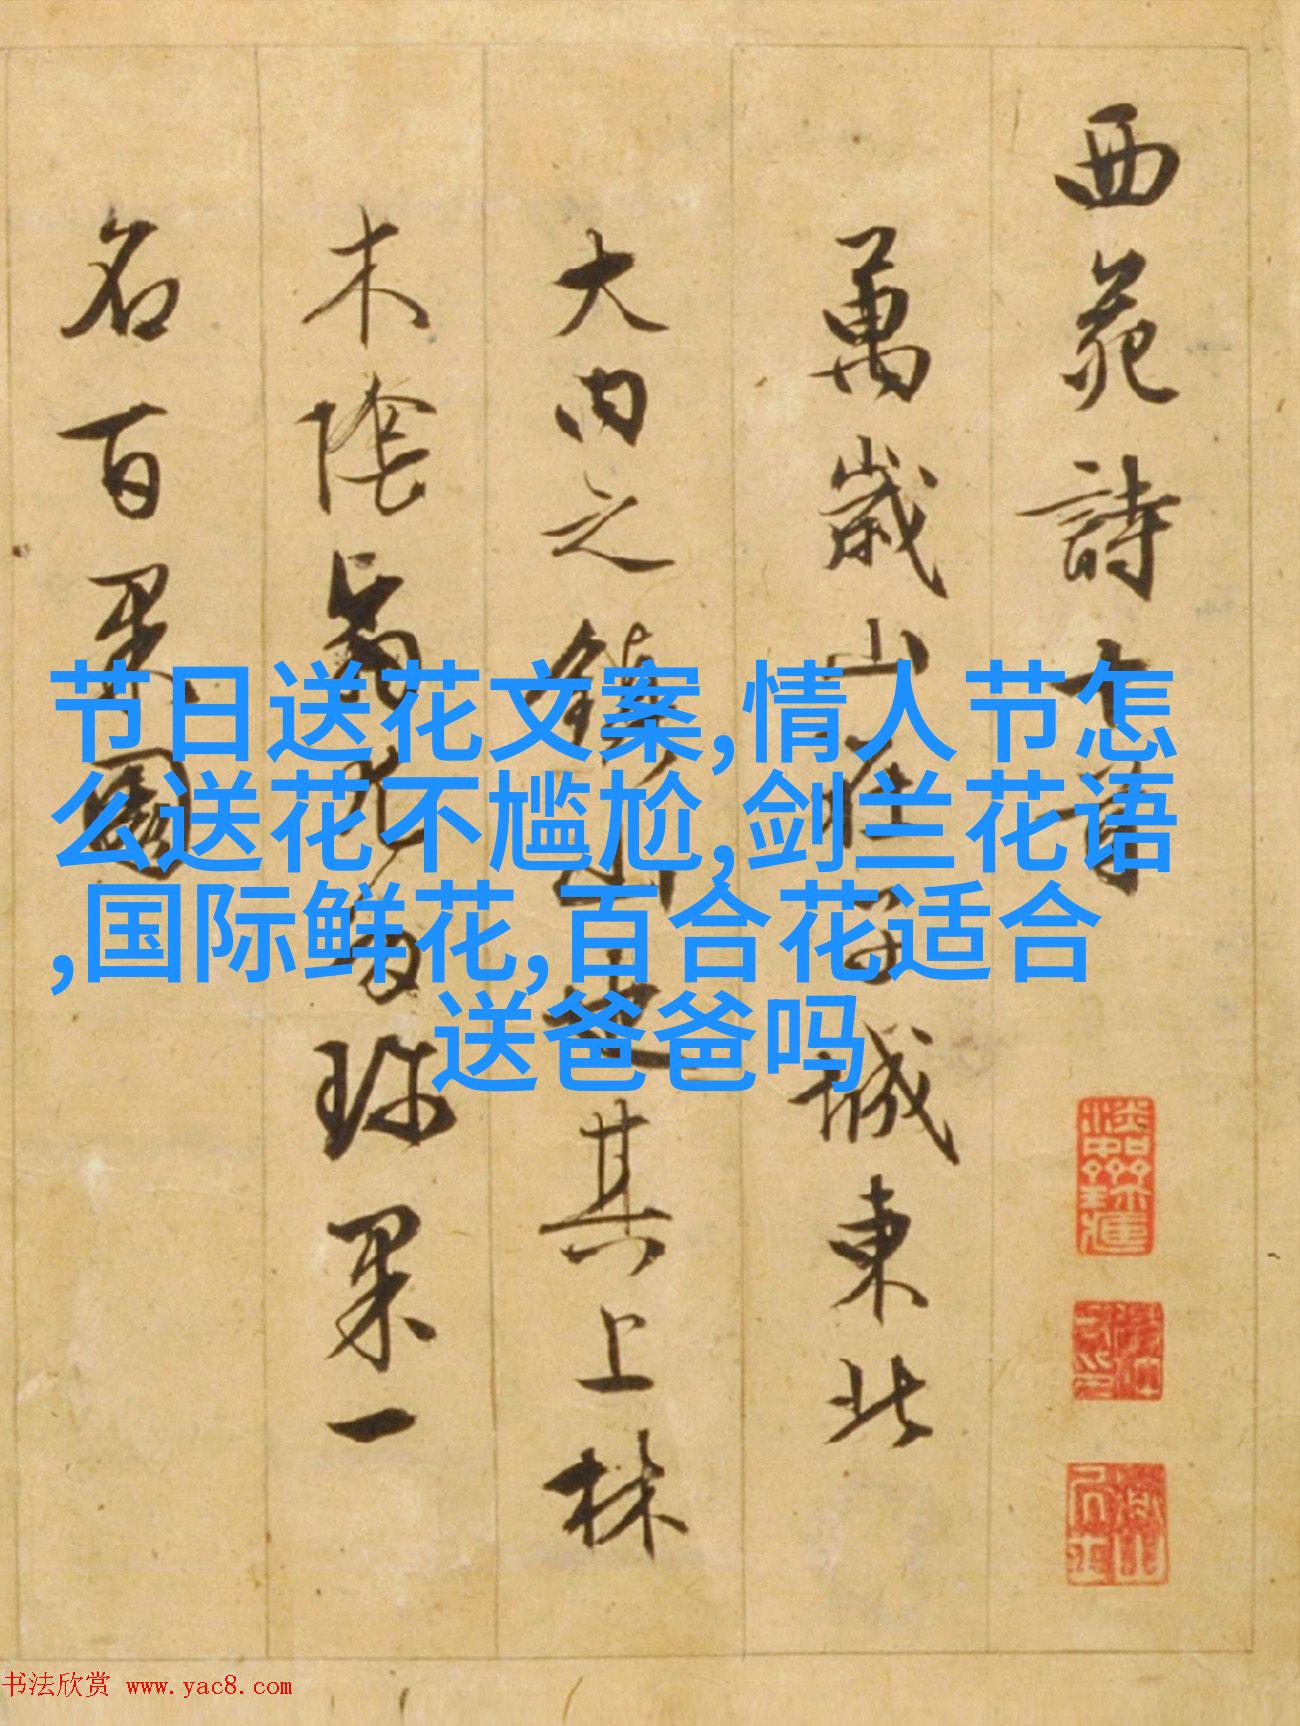 西苑詩十首
萬歲山在子城東北
大内之鎮山也其上林
木陰翳尤多珍果一
名百果園
节日送花文案,情人节怎
么送花不尴尬,剑兰花语
,国际鲜花,百合花适合
送爸爸吗
书法欣赏 www.yac8.com